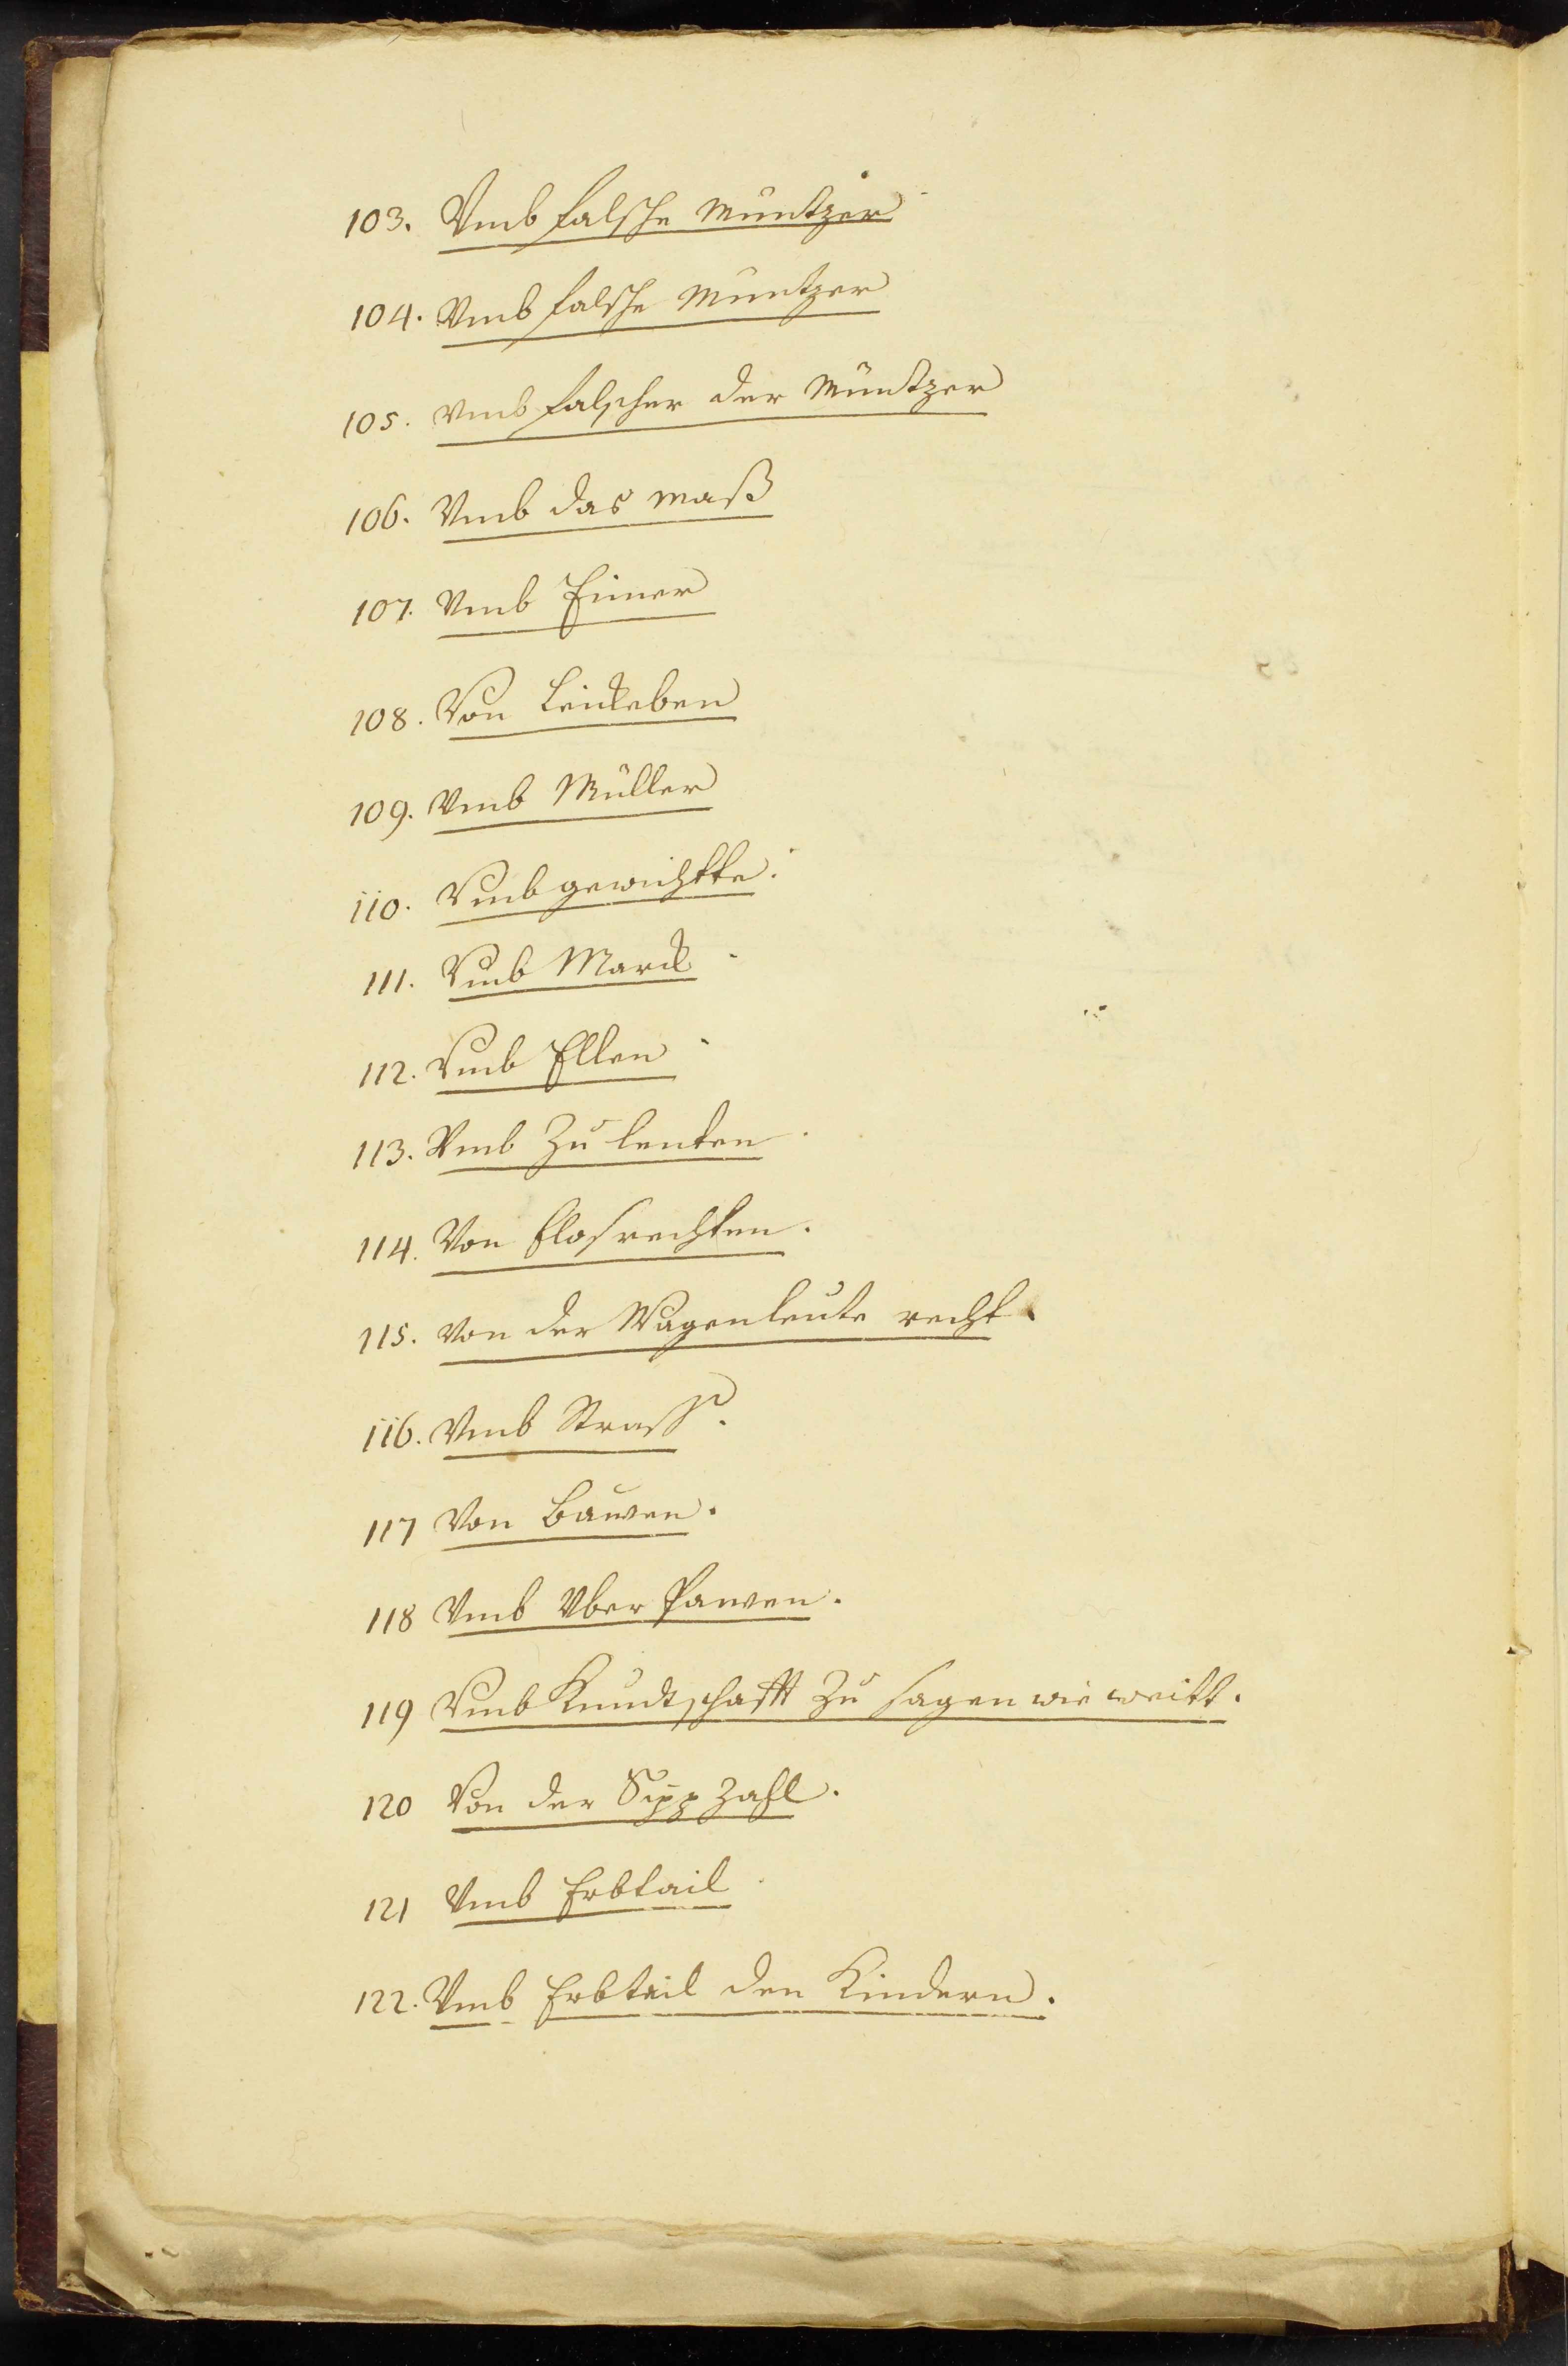 103. Vmb falsche Müntzer
104. Vmb falsche Müntzer
105. Vmb falscher der Müntzer
106. Vmb das maß
107. Vmb Eimer
108. Von Leitkeben
109. Vmb Müller
110. Vmb gewichtte.
111. Vmb Marck.
112. Vmb Ellen.
113. Vmb Zu lenten.
114. Von flosrechten.
115. Von der Wagenleute recht.
116. Vmb Strass.
117 Von bawen.
118 Vmb Vber Pawen.
119 Vmb Kundtschafft Zu sagen wie weitt.
120 Von der Sipp Zahl.
121 Vmb Erbtail.
122. Vmb Erbteil den Kindern.